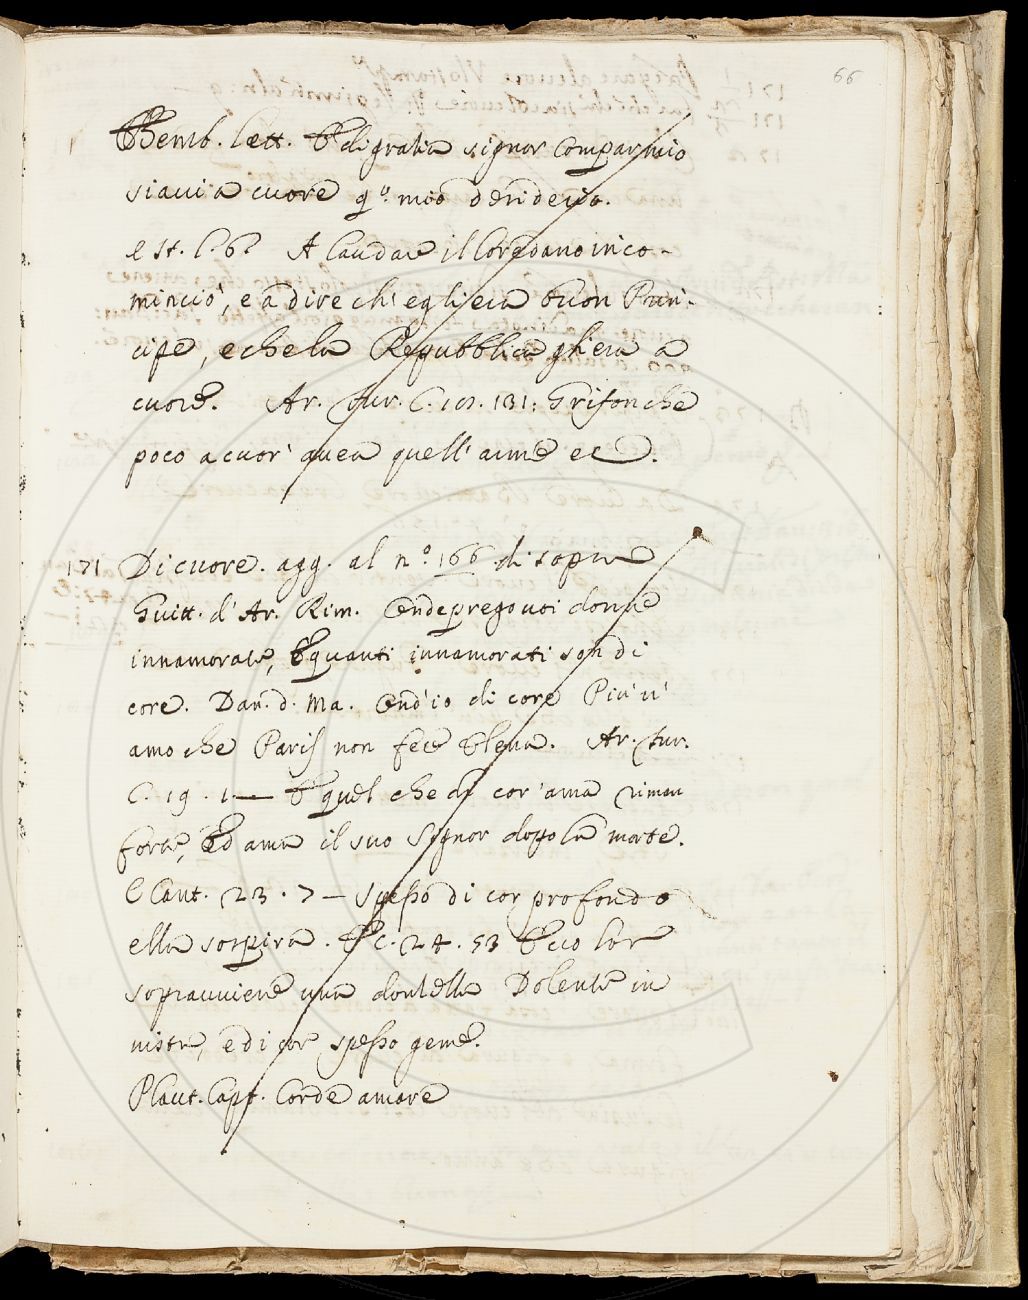 66
Bemb. Lett. E di gratia signor Compar mio
siavi a cuore q.o mio desiderio.
e st. l. 6. A laudare il Loredano inco-
minciò, e a dire ch'egli era buon Prin-
cipe, e che la Repubblica gli era a
cuore. Ar. Fur. C. 131: Grifon che
poco a cuor' avea quell' arme ec.
171 Di cuore. agg. al n.o 166 di sopra
Guitt. d'Ar. Rim. Onde prego voi donne
innamorate, E quanti innamorati son di
core. Dan. d. Ma. Ond'io di core Più v'
amo che Paris non fece Elena. Ar. Fur.
C. 19. 1 — E quel che di cor'ama riman
forte, Ed ama il suo Signor dopo la morte.
E Cant. 23. 7 — Spesso di cor profondo
ella sospira. E C. 24. 53 Ecco lor
sopravviene una donzella Dolente in
vista, e di cor spesso geme.
Plaut. Capt. Corde amare